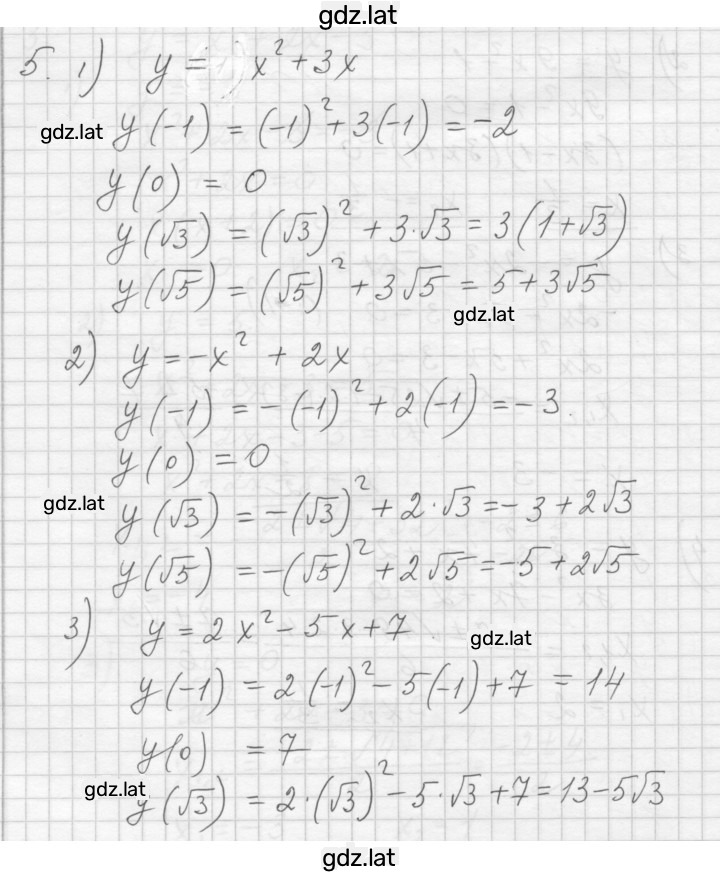 gdz.lat
5. 1) y = x² + 3x
gdz.lat y(-1) = (-1)² + 3(-1) = -2
y(0) = 0
y(√3) = (√3)² + 3·√3 = 3(1+√3)
y(√5) = (√5)² + 3√5 = 5+3√5
gdz.lat
2) y = -x² + 2x
y(-1) = -(-1)² + 2(-1) = -3.
y(0) = 0
gdz.lat y(√3) = -(√3)² + 2·√3 = -3+2√3
y(√5) = -(√5)² + 2√5 = -5+2√5
3) y = 2x² - 5x + 7
gdz.lat
y(-1) = 2(-1)² - 5(-1) + 7 = 14
y(0) = 7
gdz.lat y(√3) = 2·(√3)² - 5·√3 + 7 = 13-5√3
gdz.lat